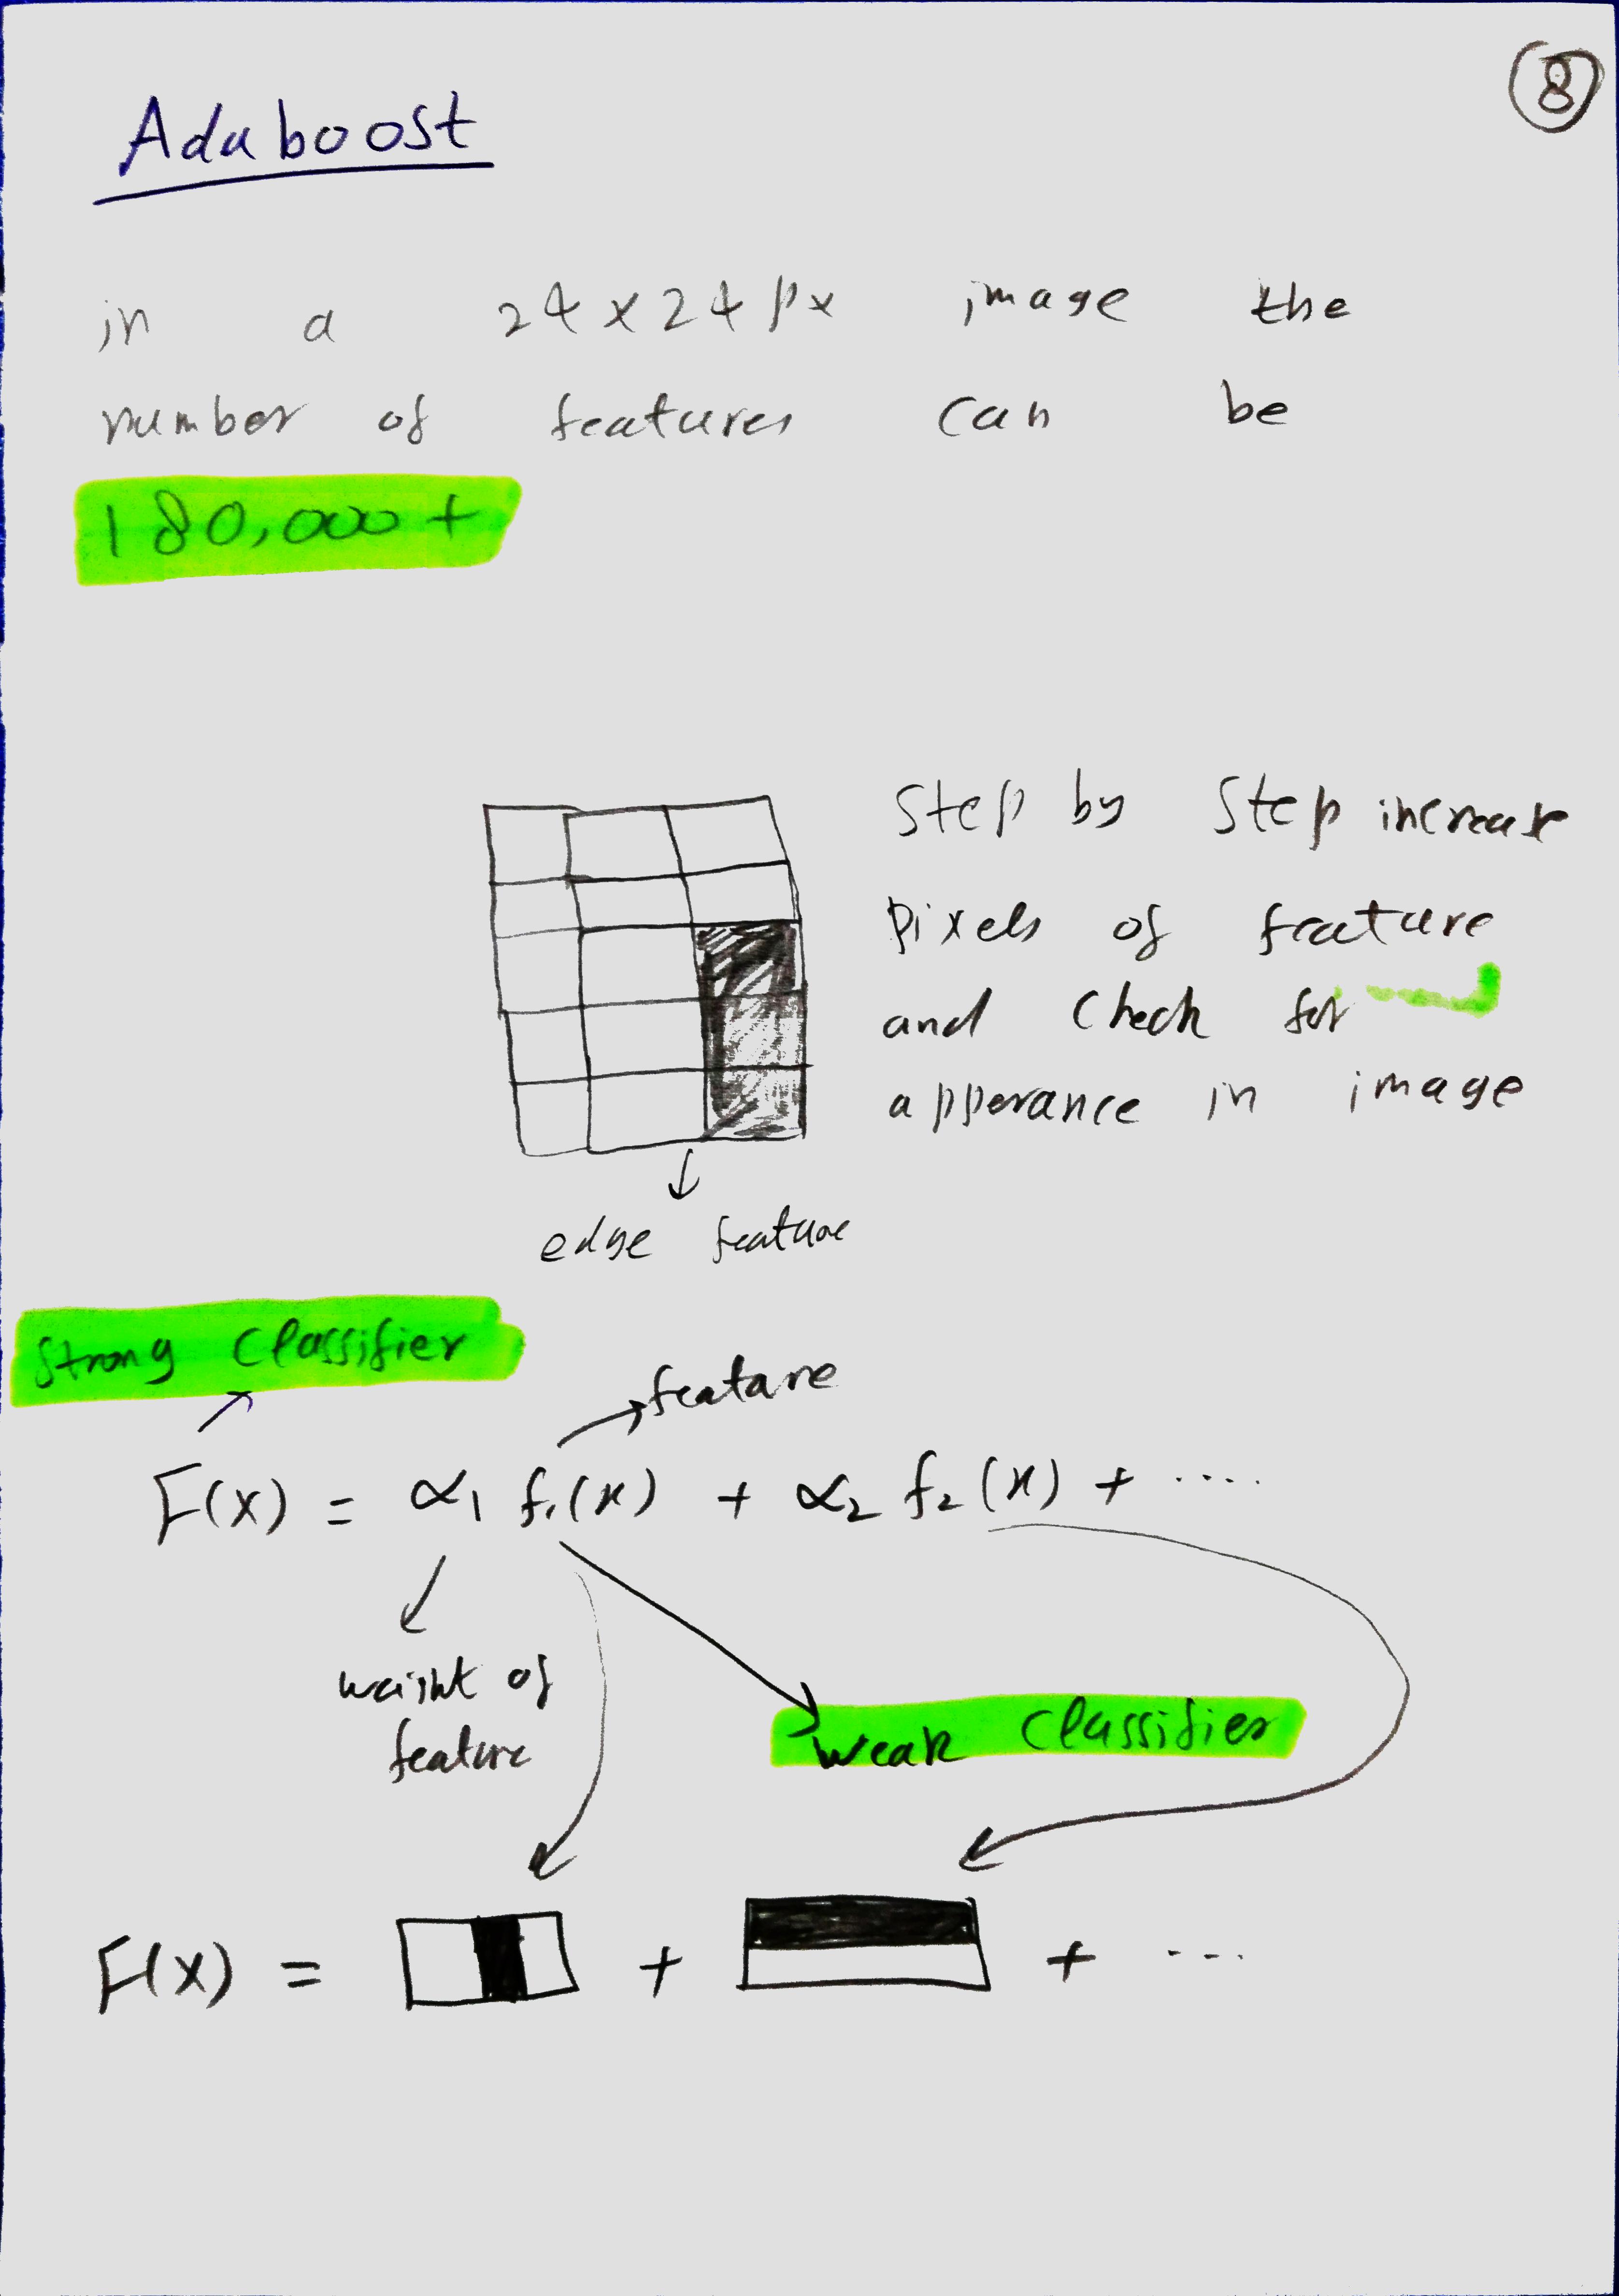 8
Adaboost
in a 24x24px image the
number of features can be
180,000+
Step by Step increase
pixels of feature
and check for
apperance in image
edge feature
Strong Classifier
feature
F(x) = α1 f1(x) + α2 f2(x) + ....
waight of
feature
weak Classifier
F(x) = + + ....